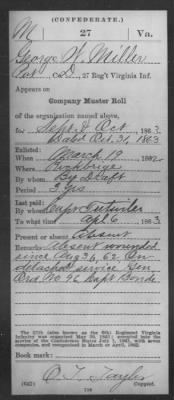 (CONFEDERATE.)
M 27 Va.
George W. Miller
Pvt Co. D, 27 Reg't Virginia Inf.
Appears on
Company Muster Roll
of the organization named above,
for Sept & Oct, 1863
Dated Oct 31, 1863
Enlisted:
When March 19, 1862
Where Rockbridge
By whom By D Capt
Period 3 yrs
Last paid:
By whom Capt Cutwiler
To what time Apl 6, 1863
Present or absent Absent
Remarks: Absent wounded
since Aug 26, 62. On
detached service Gen
Ord No 96 Dept Bonde
The 27th (also known as the 6th) Regiment Virginia
Infantry was organized May 30, 1861; accepted into the
service of the Confederate States July 1, 1861, with seven
companies, and reorganized in March or April, 1862.
Book mark:
(642) Copyist.